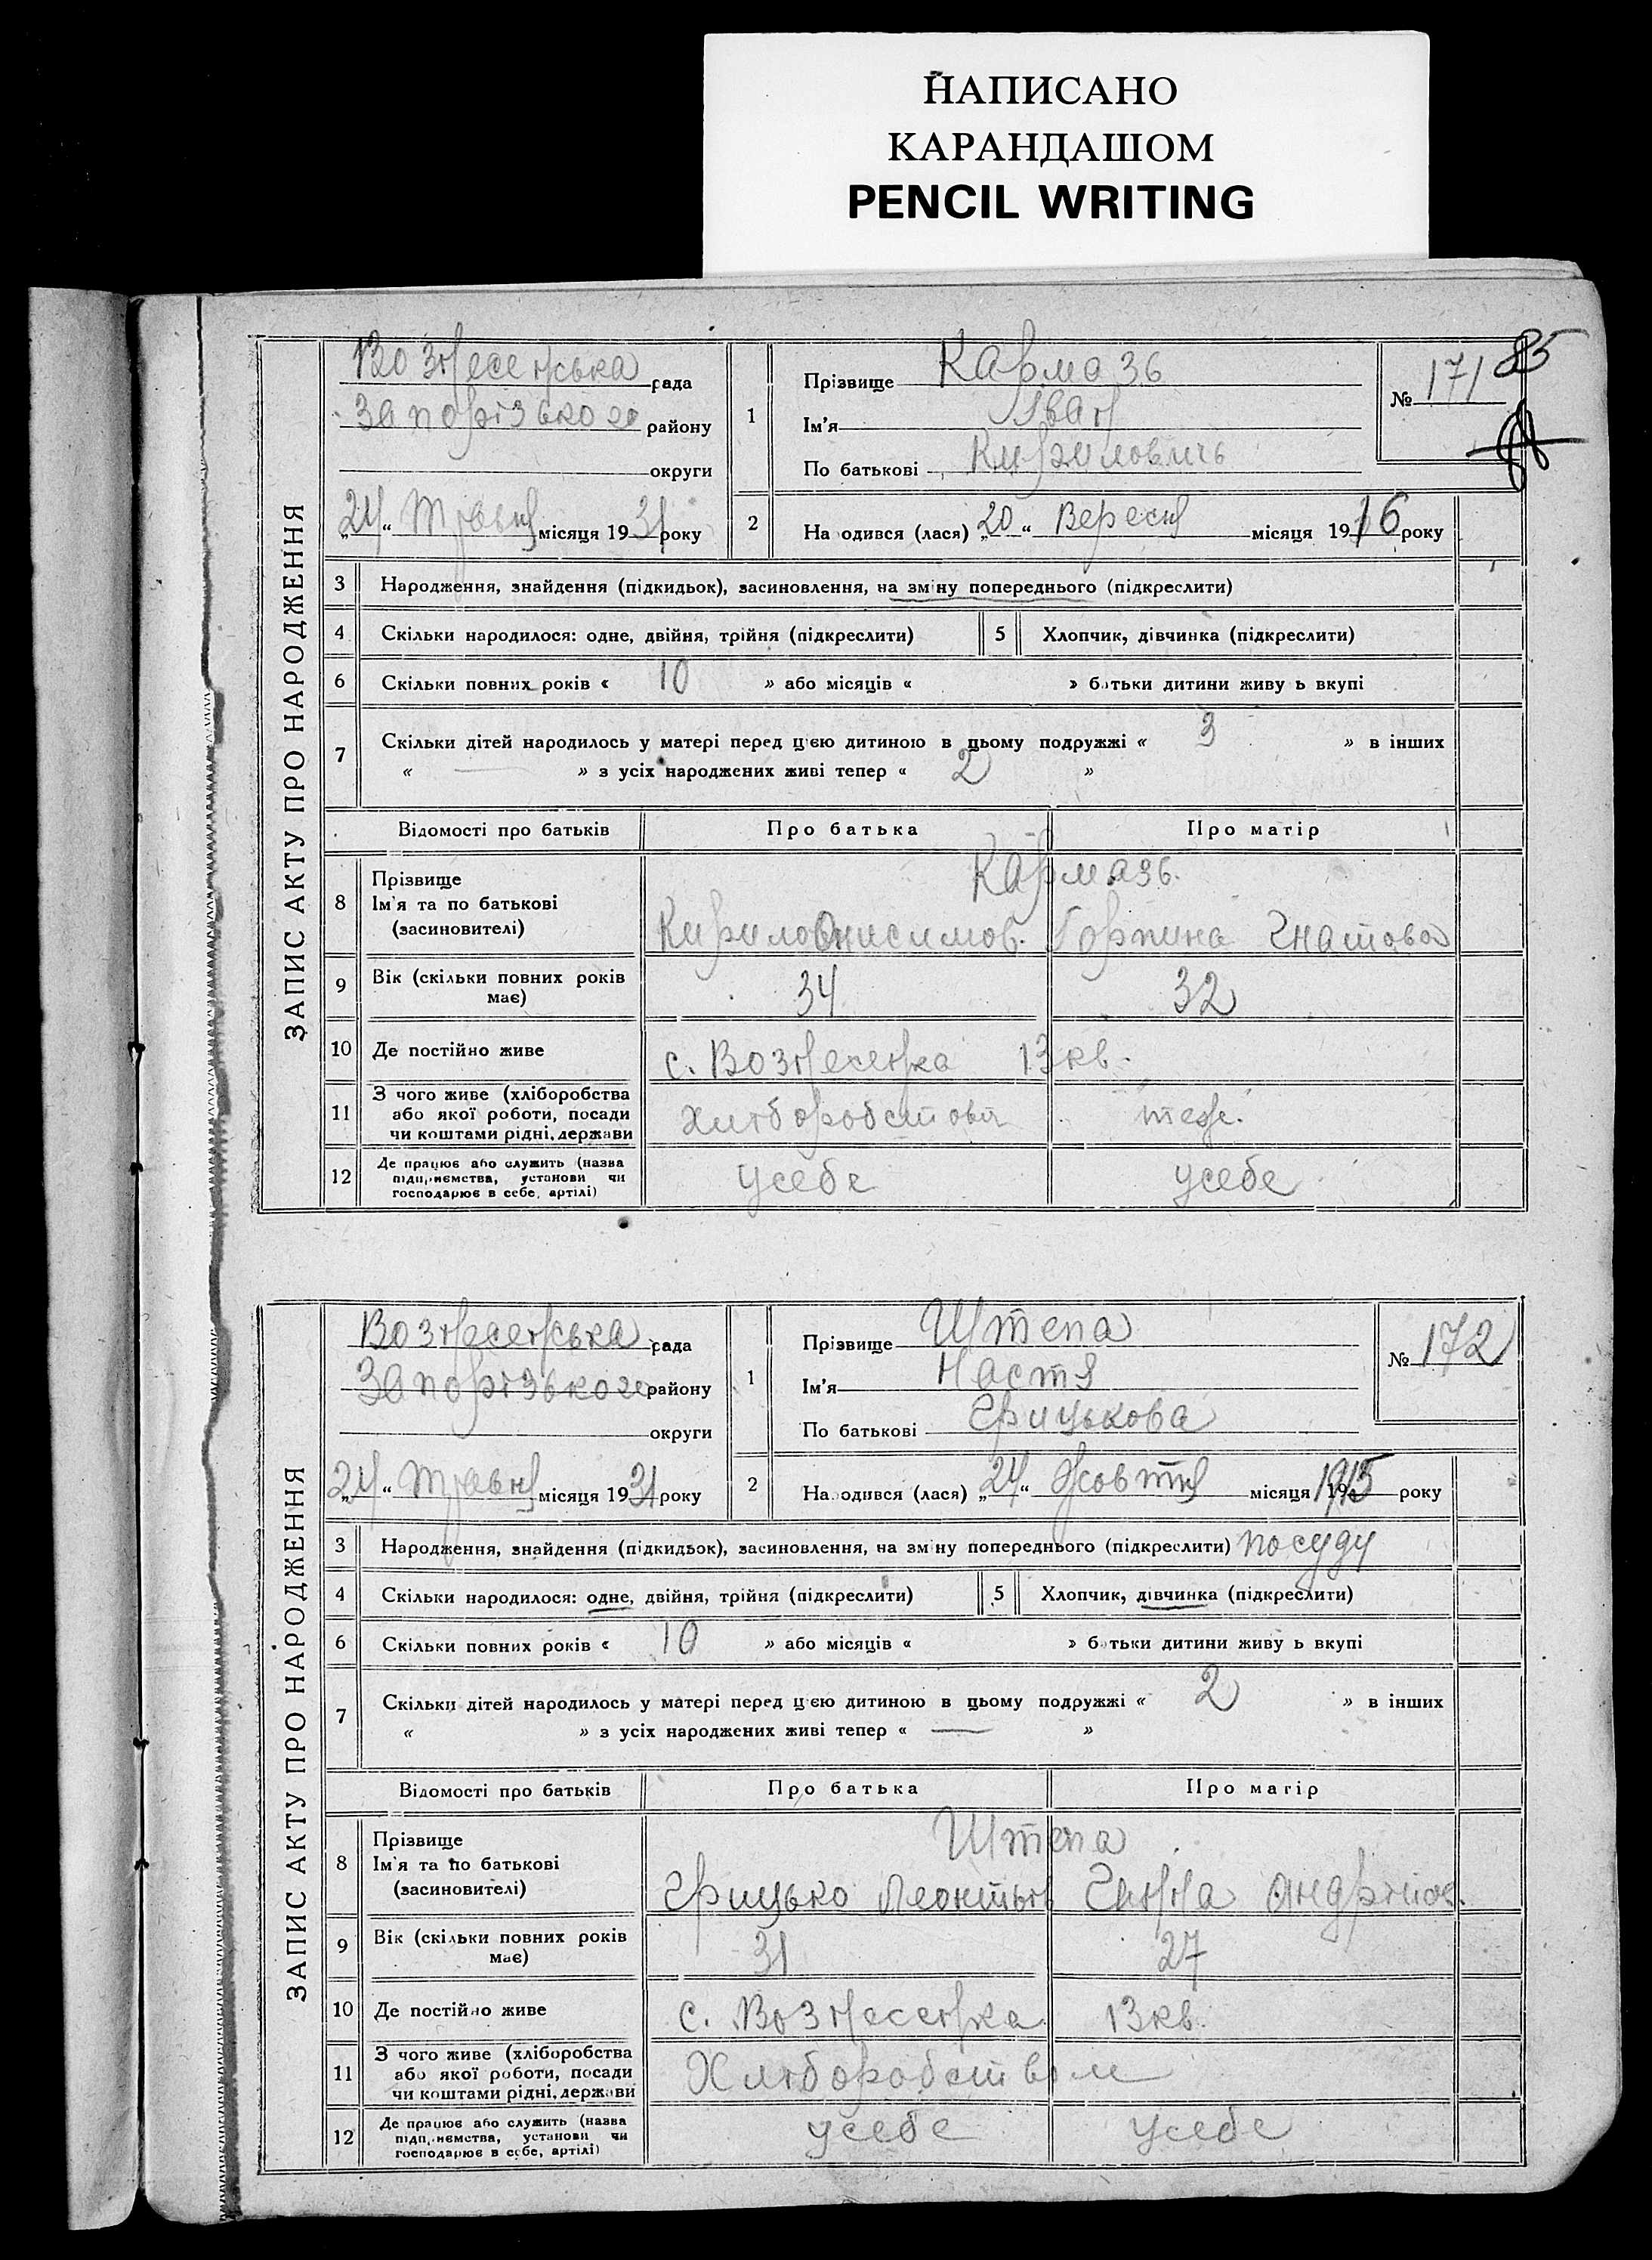 НАПИСАНО
КАРАНДАШОМ
PENCIL WRITING
85
ЗАПИС АКТУ ПРО НАРОДЖЕННЯ
Вознесенська рада
Запорізького району
округи
„24“ Травня місяця 1931 року
1
Прізвище Кармазь
Ім'я Іван
По батькові Кириловичь
№ 171
2
Народився (лася) „20“ Вересня місяця 1916 року
3 Народження, знайдення (підкидьок), засиновлення, на зміну попереднього (підкреслити)
4 Скільки народилося: одне, двійня, трійня (підкреслити) 5 Хлопчик, дівчинка (підкреслити)
6 Скільки повних років « 10 » або місяців « » батьки дитини живуть вкупі
7 Скільки дітей народилось у матері перед цією дитиною в цьому подружжі « 3 » в інших
« — » з усіх народжених живі тепер « 2 »
Відомості про батьків Про батька Про матір
8 Прізвище
Ім'я та по батькові
(засиновителі)
Кармазь.
Кирило Онисимов. Горпина Гнатова
9 Вік (скільки повних років має) 34 32
10 Де постійно живе с. Вознесенка 13 кв.
11 З чого живе (хліборобства
або якої роботи, посади
чи коштами рідні, держави
теж.
12 Де працює або служить (назва
підприємства, установи чи
господарює в себе, артілі)
усебе усебе
ЗАПИС АКТУ ПРО НАРОДЖЕННЯ
Вознесенська рада
Запорізького району
округи
„24“ Травня місяця 1931 року
1
Прізвище Штепа
Ім'я Настя
По батькові Грицькова
№ 172
2
Народився (лася) „24“ Жовтня місяця 1915 року
3 Народження, знайдення (підкидьок), засиновлення, на зміну попереднього (підкреслити) посуду
4 Скільки народилося: одне, двійня, трійня (підкреслити) 5 Хлопчик, дівчинка (підкреслити)
6 Скільки повних років « 10 » або місяців « » батьки дитини живуть вкупі
7 Скільки дітей народилось у матері перед цією дитиною в цьому подружжі « 2 » в інших
« » з усіх народжених живі тепер « — »
Відомості про батьків Про батька Про матір
8 Прізвище
Ім'я та по батькові
(засиновителі)
Штепа
Грицько Леонтьев Ганна Андріїов.
9 Вік (скільки повних років має) 31 27
10 Де постійно живе с. Вознесенка 13 кв.
11 З чого живе (хліборобства
або якої роботи, посади
чи коштами рідні, держави
Хліборобством
12 Де працює або служить (назва
підприємства, установи чи
господарює в себе, артілі)
усебе усебе